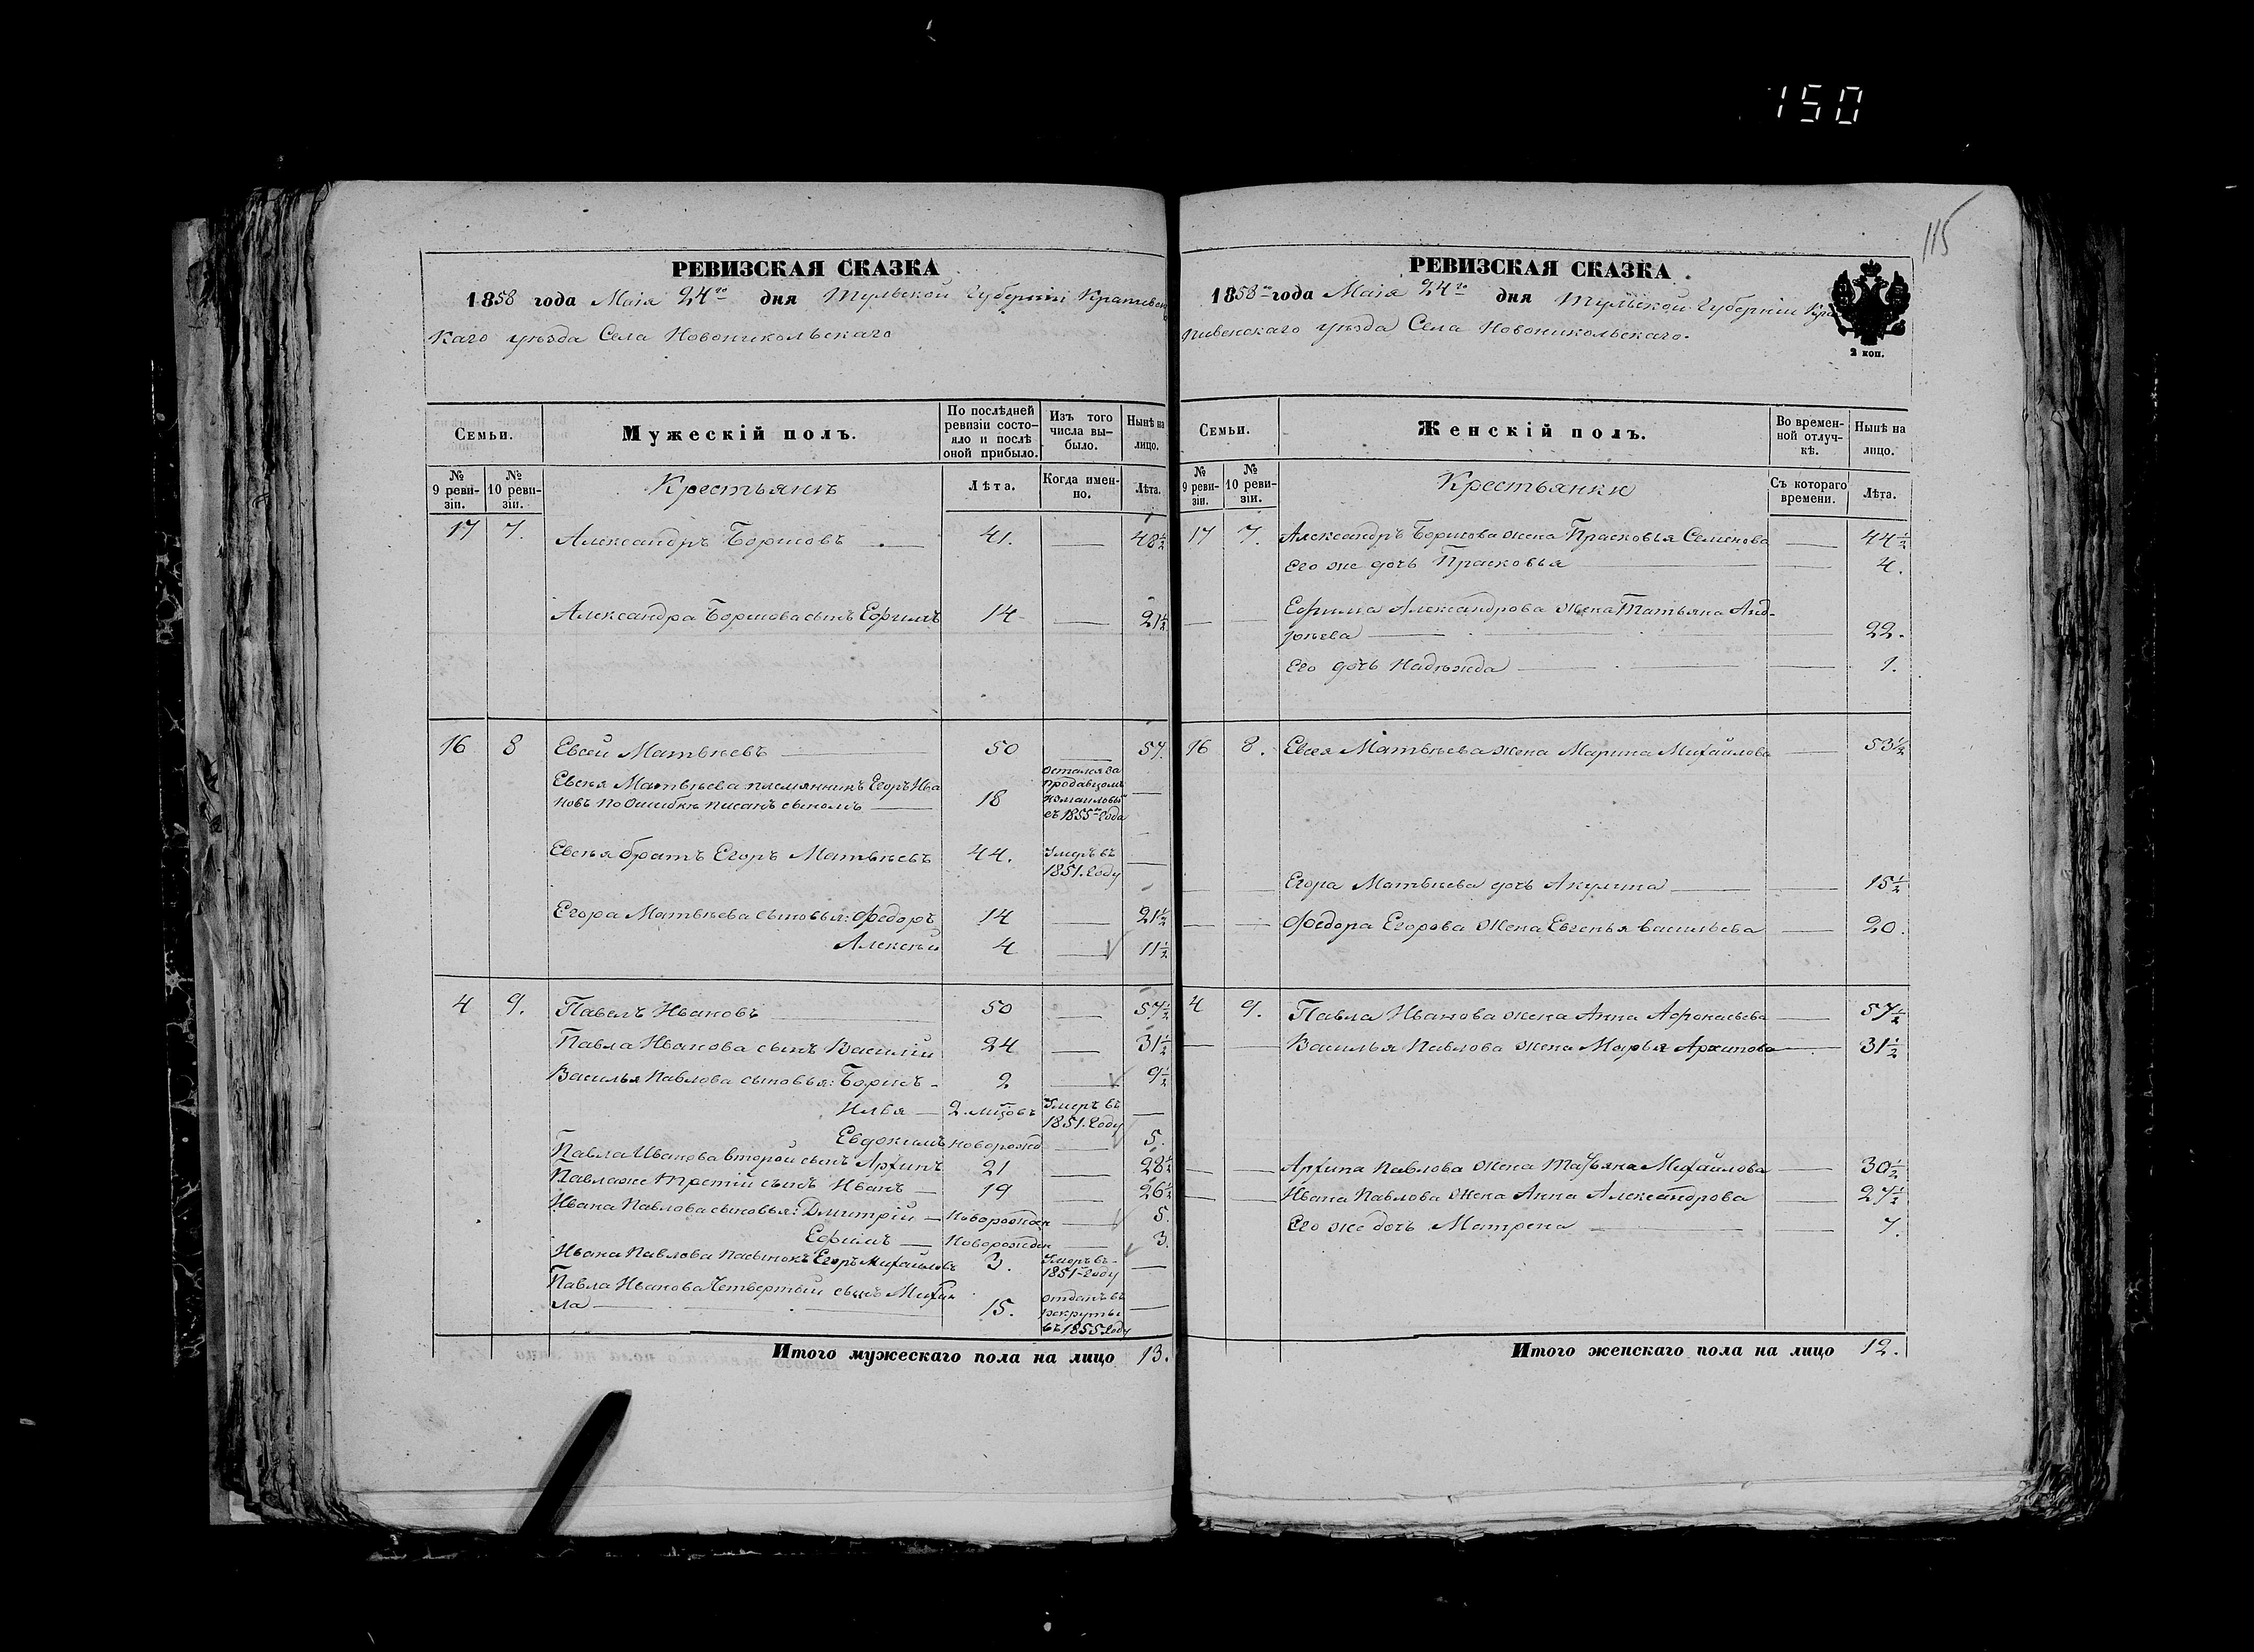 150
115
РЕВИЗСКАЯ СКАЗКА
1858 года Маія 24го дня Тульской Губерніи Крапивенс
каго уѣзда Села Новоникольскаго
Семьи.
Мужескій полъ.
По послѣдней ревизіи состояло и послѣ оной прибыло.
Изъ того числа выбыло.
Нынѣ на лицо.
№ 9 ревизіи.
№ 10 ревизіи.
Крестьянъ
Лѣта.
Когда именно.
Лѣта.
17 7. Александръ Борисовъ 41. 48½
Александра Борисова сынъ Ефимъ 14 21½
16 8 Евсей Матвѣевъ 50 57.
Евсѣя Матвѣева племянникъ Егоръ Ива
новъ по ошибкѣ писанъ сыномъ 18
остался за
продавцомъ
съ 1855го года
Евсѣя братъ Егоръ Матвѣевъ 44. Умеръ въ
1851. году
Егора Матвѣева сыновья: Федоръ 14 21½
Алексѣй 4 11½
4 9. Павелъ Ивановъ 50 57½
Павла Иванова сынъ Василій 24 31½
Василья Павлова сыновья: Борисъ 2 9½
Илья 2. мѣсяцовъ Умеръ въ
1851. году
Евдокимъ новорожд 5.
Павла Иванова второй сынъ Архипъ 21 28½
Павла же третій сынъ Иванъ 19 26½
Ивана Павлова сыновья: Дмитрій новорожден 5.
Ефимъ новорожден 3.
Ивана Павлова пасынокъ Егоръ Михайловъ 3. Умеръ въ
1851 году
Павла Иванова Четвертый сынъ Михаи
ла 15. отданъ въ
рекруты
въ 1855 году
Итого мужескаго пола на лицо 13.
РЕВИЗСКАЯ СКАЗКА
1858го года Маія 24го дня Тульской Губерніи Кра
пивенскаго уѣзда Села Новоникольскаго.
2 коп.
Семьи.
Женскій полъ.
Во временной отлучкѣ.
Нынѣ на лицо.
№ 9 ревизіи.
№ 10 ревизіи.
Крестьянки
Съ котораго времени.
Лѣта.
17 7. Александръ Борисова жена Прасковья Семенова 44½
Его же дочь Прасковья 4.
Ефима Александрова жена Татьяна Анд-
рѣева 22.
Его дочь Надежда 1.
16 8. Евсея Матвѣева жена Марина Михайлова 53½
Егора Матвѣева дочь Акулина 15½
Федора Егорова жена Евгенья Васильева 20.
4 9. Павла Иванова жена Анна Афонасьева 57½
Василья Павлова жена Марья Архипова 31½
Архипа Павлова жена Татьяна Михайлова 30½
Ивана Павлова жена Анна Александрова 27½
Его же дочь Матрена 7.
Итого женскаго пола на лицо 12.